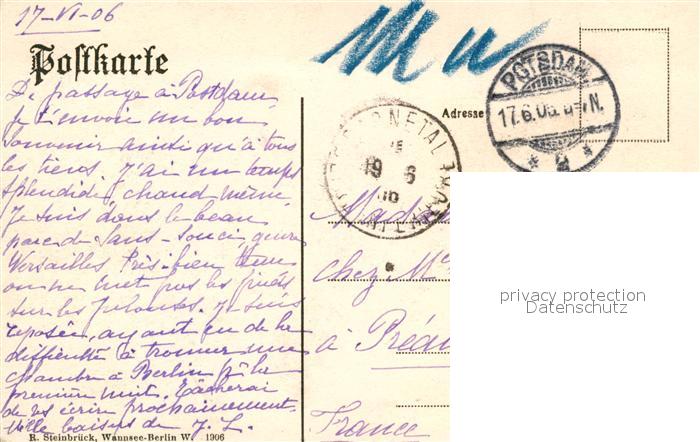 17-VI-06
Postkarte
De passage à Postdam,
je t'envoie un bon
souvenir ainsi qu'à tous
les tiens. J'ai un temps
splendide, chaud même.
Je suis dans le beau
parc de Sans-Souci, genre
Versailles très-bien tenu
on ne met pas les pieds
sur les pelouses. Je suis
reposée, ayant eu de la
difficulté à trouver une
chambre à Berlin
première nuit. Tâcherai
de vs écrire prochainement.
Mille baisers de J. L.
R. Steinbrück, Wannsee-Berlin W. 1906
M u
Adresse
POTSDAM
17.6.06. N.
* 2 *
NETAL
19 6
06
INFÉRIEURE
Mada
Chez M
à Préa
France
privacy protection
Datenschutz